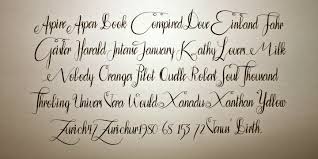 Aspire Aspen Book Compired Door Einland Fahr
Geister Harald Intenic January Kathy Lovers Milk
Nobody Oranges Pilot Oudle Robert Soul Thousand
Throbing Univers Vara Would Xanadis Xanthan Yellow
Zurich92 Zurichur1980 65 153 72 Canus' Birth.